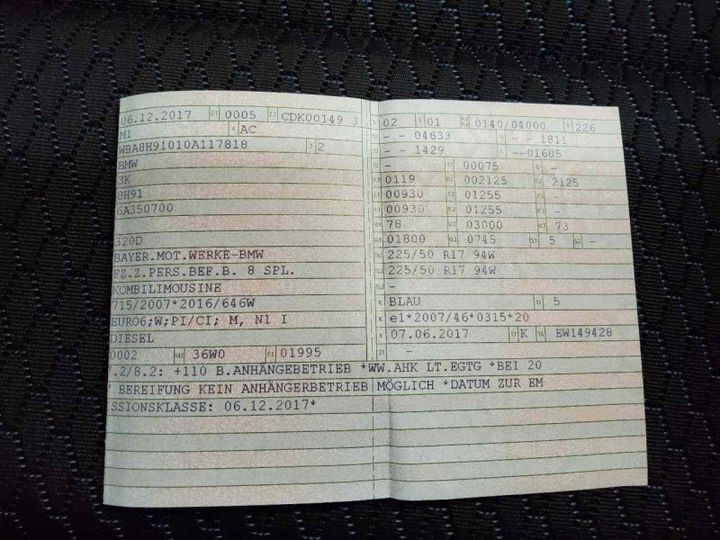 06.12.2017 0005 CDK00149 3
M1 AC
WBA8H91010A117818 2
BMW
3K
8H91
6A350700
320D
BAYER.MOT.WERKE-BMW
FZ.Z.PERS.BEF.B. 8 SPL.
KOMBILIMOUSINE
715/2007*2016/646W
EURO6;W;PI/CI; M, N1 I
DIESEL
0002 36W0 01995
.2/8.2: +110 B.ANHÄNGEBETRIEB *WW.AHK LT.EGTG *BEI 20
" BEREIFUNG KEIN ANHÄNGERBETRIEB MÖGLICH *DATUM ZUR EM
ISSIONSKLASSE: 06.12.2017*
02 01 0140/04000 226
- - 04633 - - 1811
- - 1429 - --01605
- 00075 -
0119 002125 2125
00930 01255 -
00930 01255 -
78 03000 73
01800 0745 5 -
225/50 R17 94W
225/50 R17 94W
-
BLAU 5
e1*2007/46*0315*20
07.06.2017 K EW149428
-